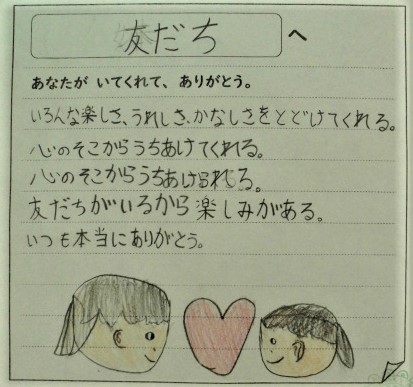 友だちへ
あなたが いてくれて、ありがとう。
いろんな楽しさ、うれしさ、かなしさをとどけてくれる。
心のそこからうちあけてくれる。
心のそこからうちあけられる。
友だちがいるから楽しみがある。
いつも本当にありがとう。